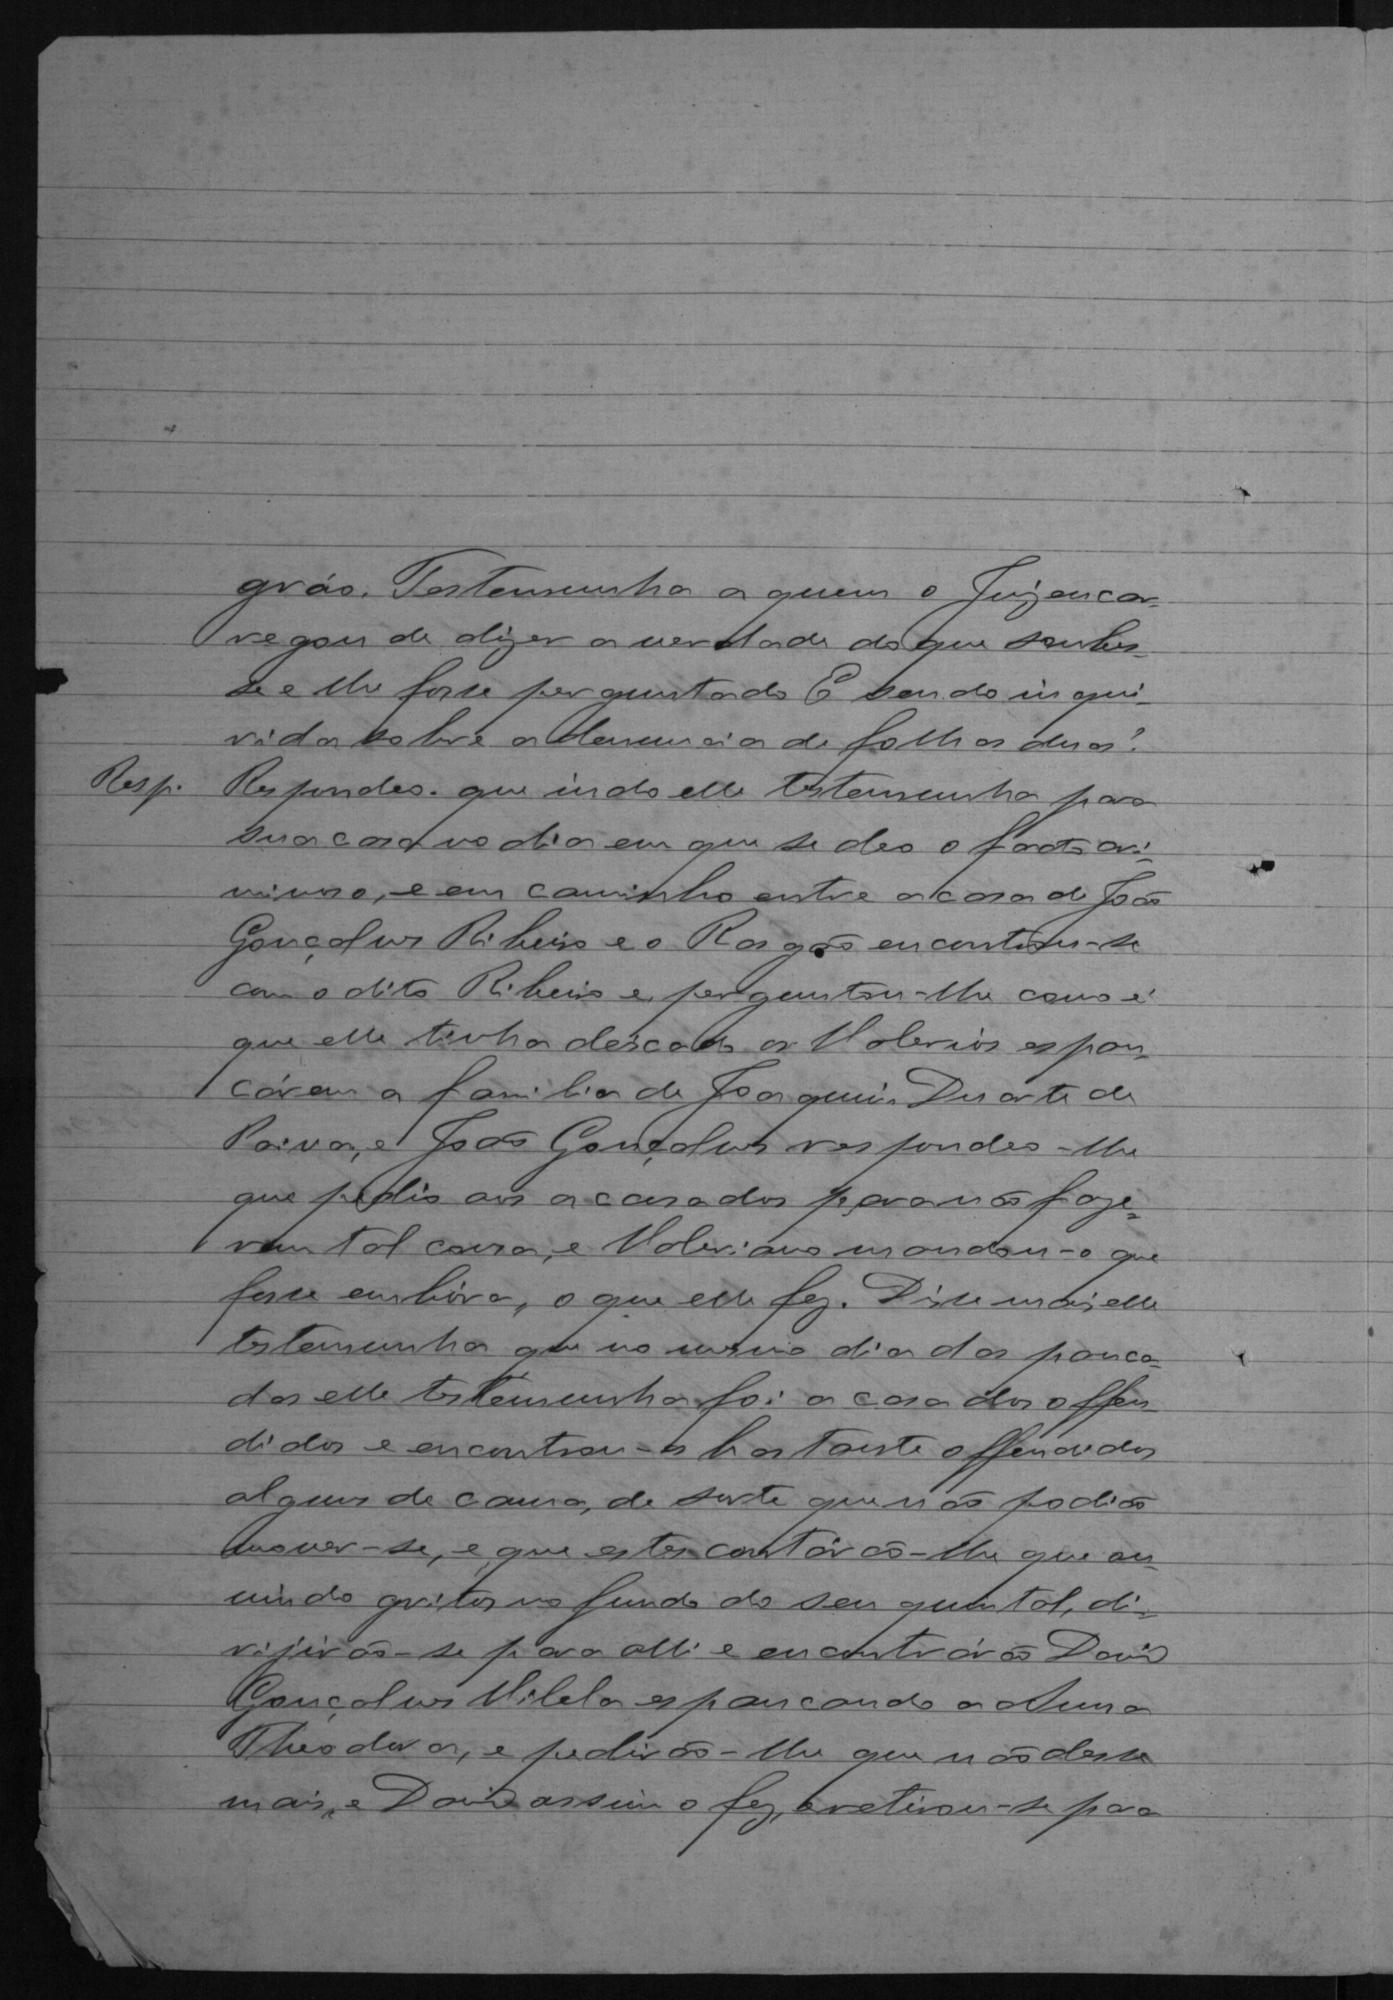 gráo. Testemunha a quem o Juiz encar-
regou de dizer a verdade do que soubes-
se e lhe fosse perguntado E sendo inqui-
rida sobre a denuncia de folhas duas?
Resp. Respondeo. que indo elle testemunha para
sua casa no dia em que se deo o facto cri-
minoso, e em caminho entre a casa de João
Gonçalves Ribeiro e o Rasgão encontrou-se
com o dito Ribeiro e perguntou-lhe como é
que elle tinha deixado os Valerios espan-
cárem a familia de Joaquim Duarte de
Paiva, e João Gonçalves respondeo-lhe
que pedio aos acusados para não faze-
rem tal cousa, e Valeriano mandou-o que
fosse embóra, o que elle fez. Disse mais elle
testemunha que no mesmo dia das panca-
das elle testemunha foi a casa dos offen
didos e encontrou-os bastante offendidos
alguns de cama, de sorte que não podião
mover-se, e que estes contárão-lhe que ou-
vindo gritos no fundo do seu quintal, di-
rijirão-se para alli e encontrárão David
Gonçalves Vilela espancando a Anna
Theodora, e pedirão-lhe que não desse
mais, e David assim o fez, e retirou-se para